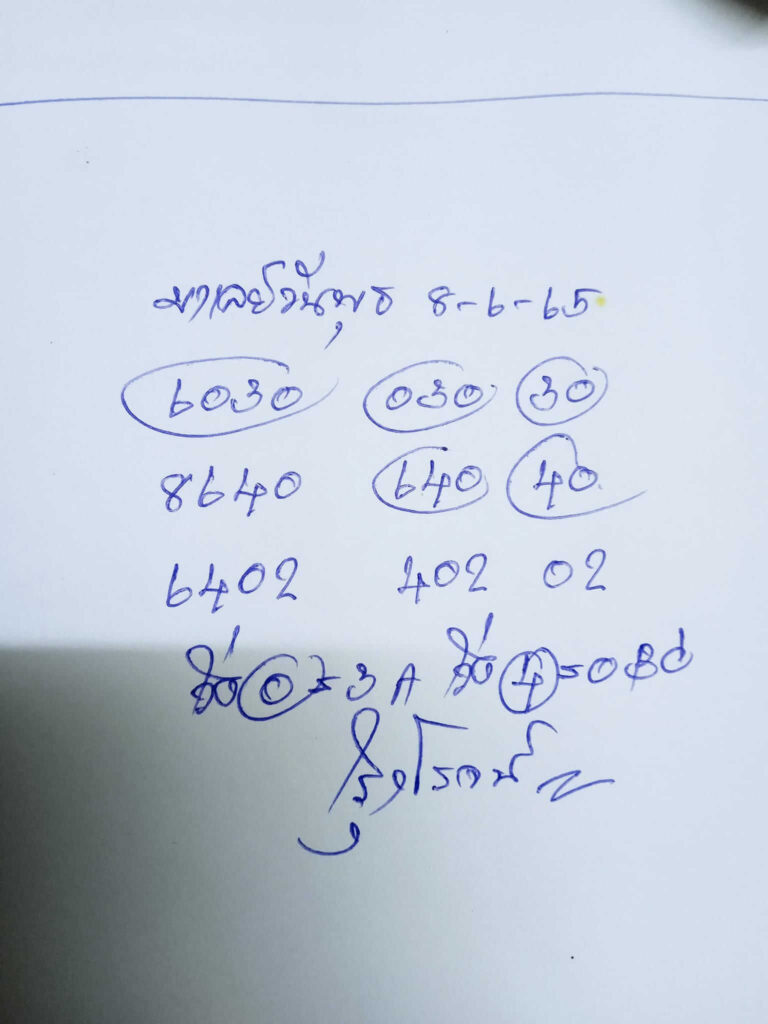 มาเลย์วันพุธ 8-6-65
6030 030 30
8640 640 40
6402 402 02
0 = 3 4 =
รุ่งโรจน์